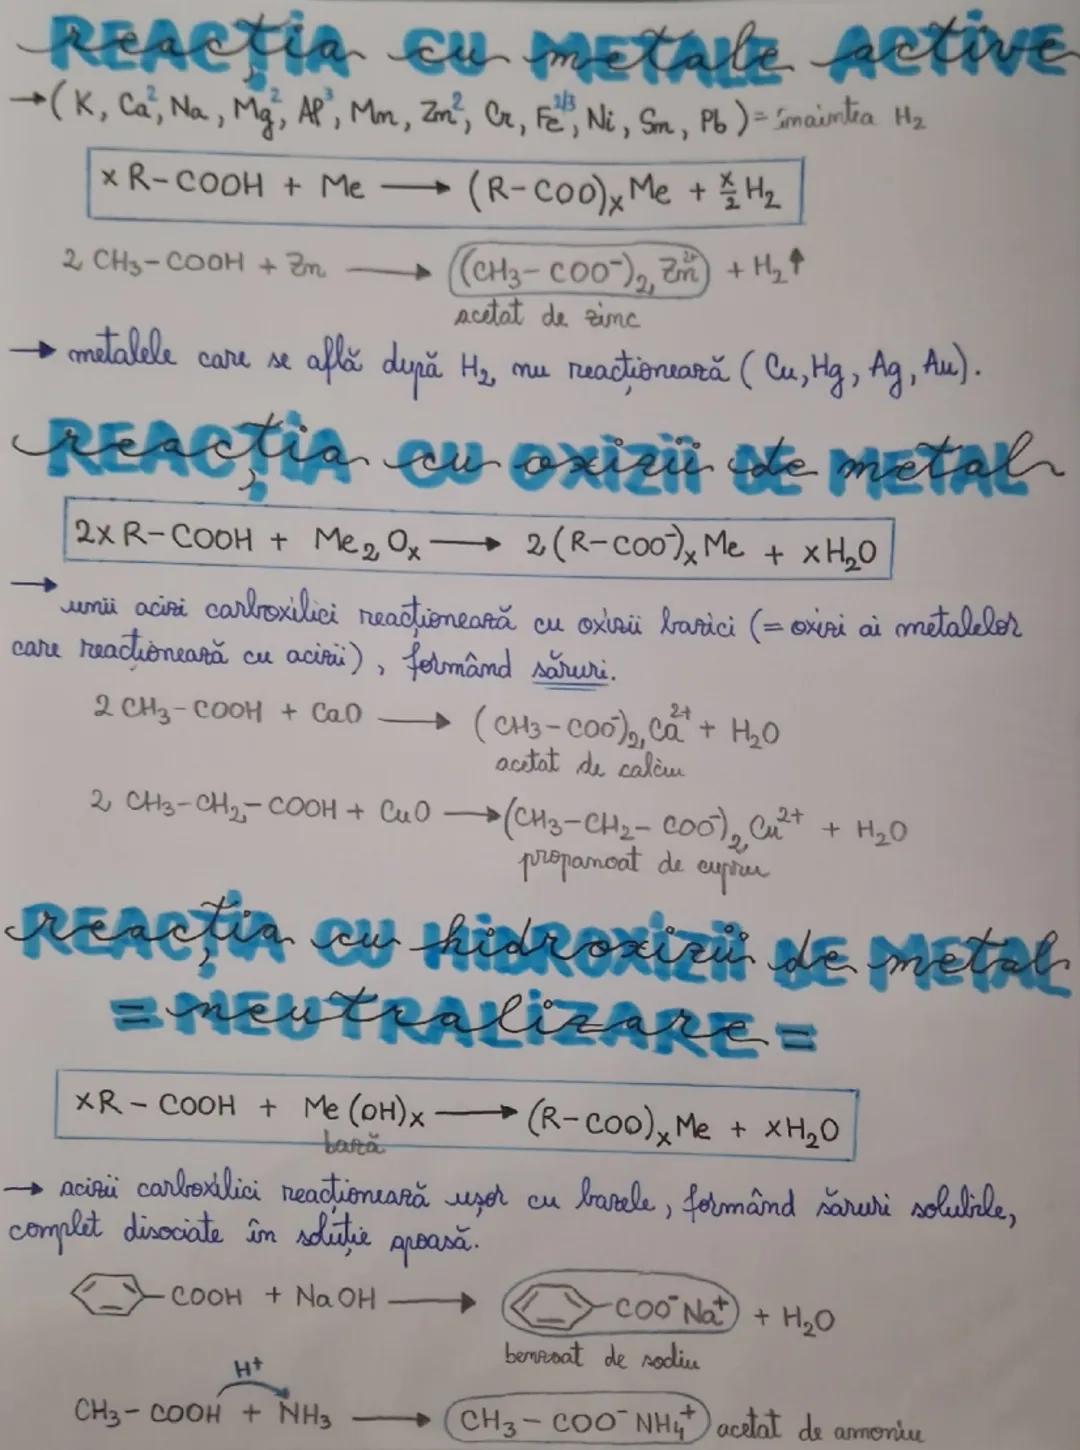 REACȚIA CU METALE ACTIVE
→ (K, Ca², Na, Mg², Al³, Mn, Zn², Cr, Fe²/³, Ni, Sn, Pb) = înaintea H₂
x R-COOH + Me ⟶ (R-COO)ₓMe + x/2 H₂
2 CH₃-COOH + Zn ⟶ (CH₃-COO⁻)₂Zn²⁺ + H₂↑
acetat de zinc
→ metalele care se află după H₂ nu reacționează (Cu, Hg, Ag, Au).
REACȚIA CU OXIZII DE METAL
2x R-COOH + Me₂Oₓ ⟶ 2(R-COO⁻)ₓMe + xH₂O
→ unii acizi carboxilici reacționează cu oxizii bazici (= oxizi ai metalelor
care reacționează cu acizii), formând săruri.
2 CH₃-COOH + CaO ⟶ (CH₃-COO⁻)₂Ca²⁺ + H₂O
acetat de calciu
2 CH₃-CH₂-COOH + CuO ⟶ (CH₃-CH₂-COO⁻)₂Cu²⁺ + H₂O
propanoat de cupru
REACȚIA CU HIDROXIZII DE METAL
= NEUTRALIZARE =
xR-COOH + Me(OH)ₓ ⟶ (R-COO)ₓMe + xH₂O
bază
→ acizii carboxilici reacționează ușor cu bazele, formând săruri solubile,
complet disociate în soluție apoasă.
-COOH + NaOH ⟶ -COO⁻Na⁺ + H₂O
benzoat de sodiu
H⁺
CH₃-COOH + NH₃ ⟶ CH₃-COO⁻NH₄⁺ acetat de amoniu